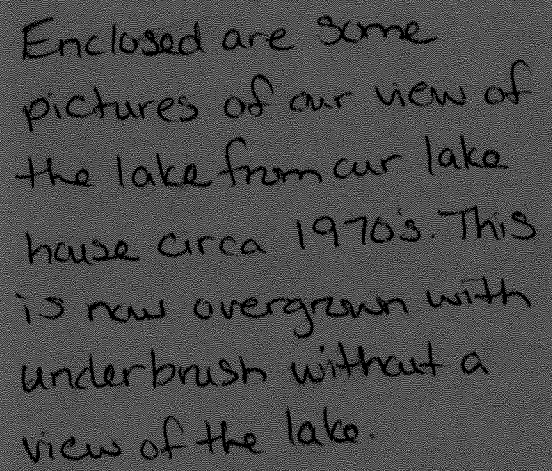 Enclosed are some
pictures of our view of
the lake from our lake
house circa 1970's. This
is now overgrown with
underbrush without a
view of the lake.